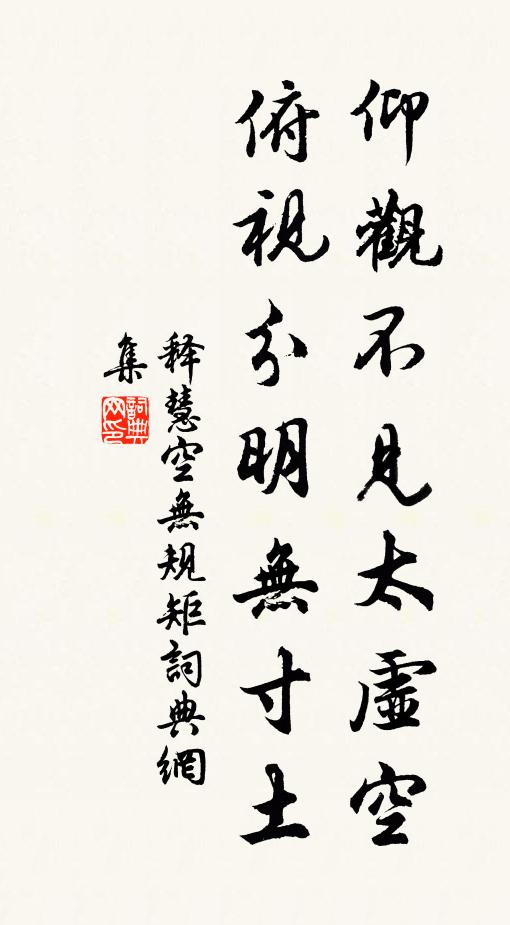 仰觀不見太虛空
俯視分明無寸土
释慧空無規矩詞典網
集
詞典
网印